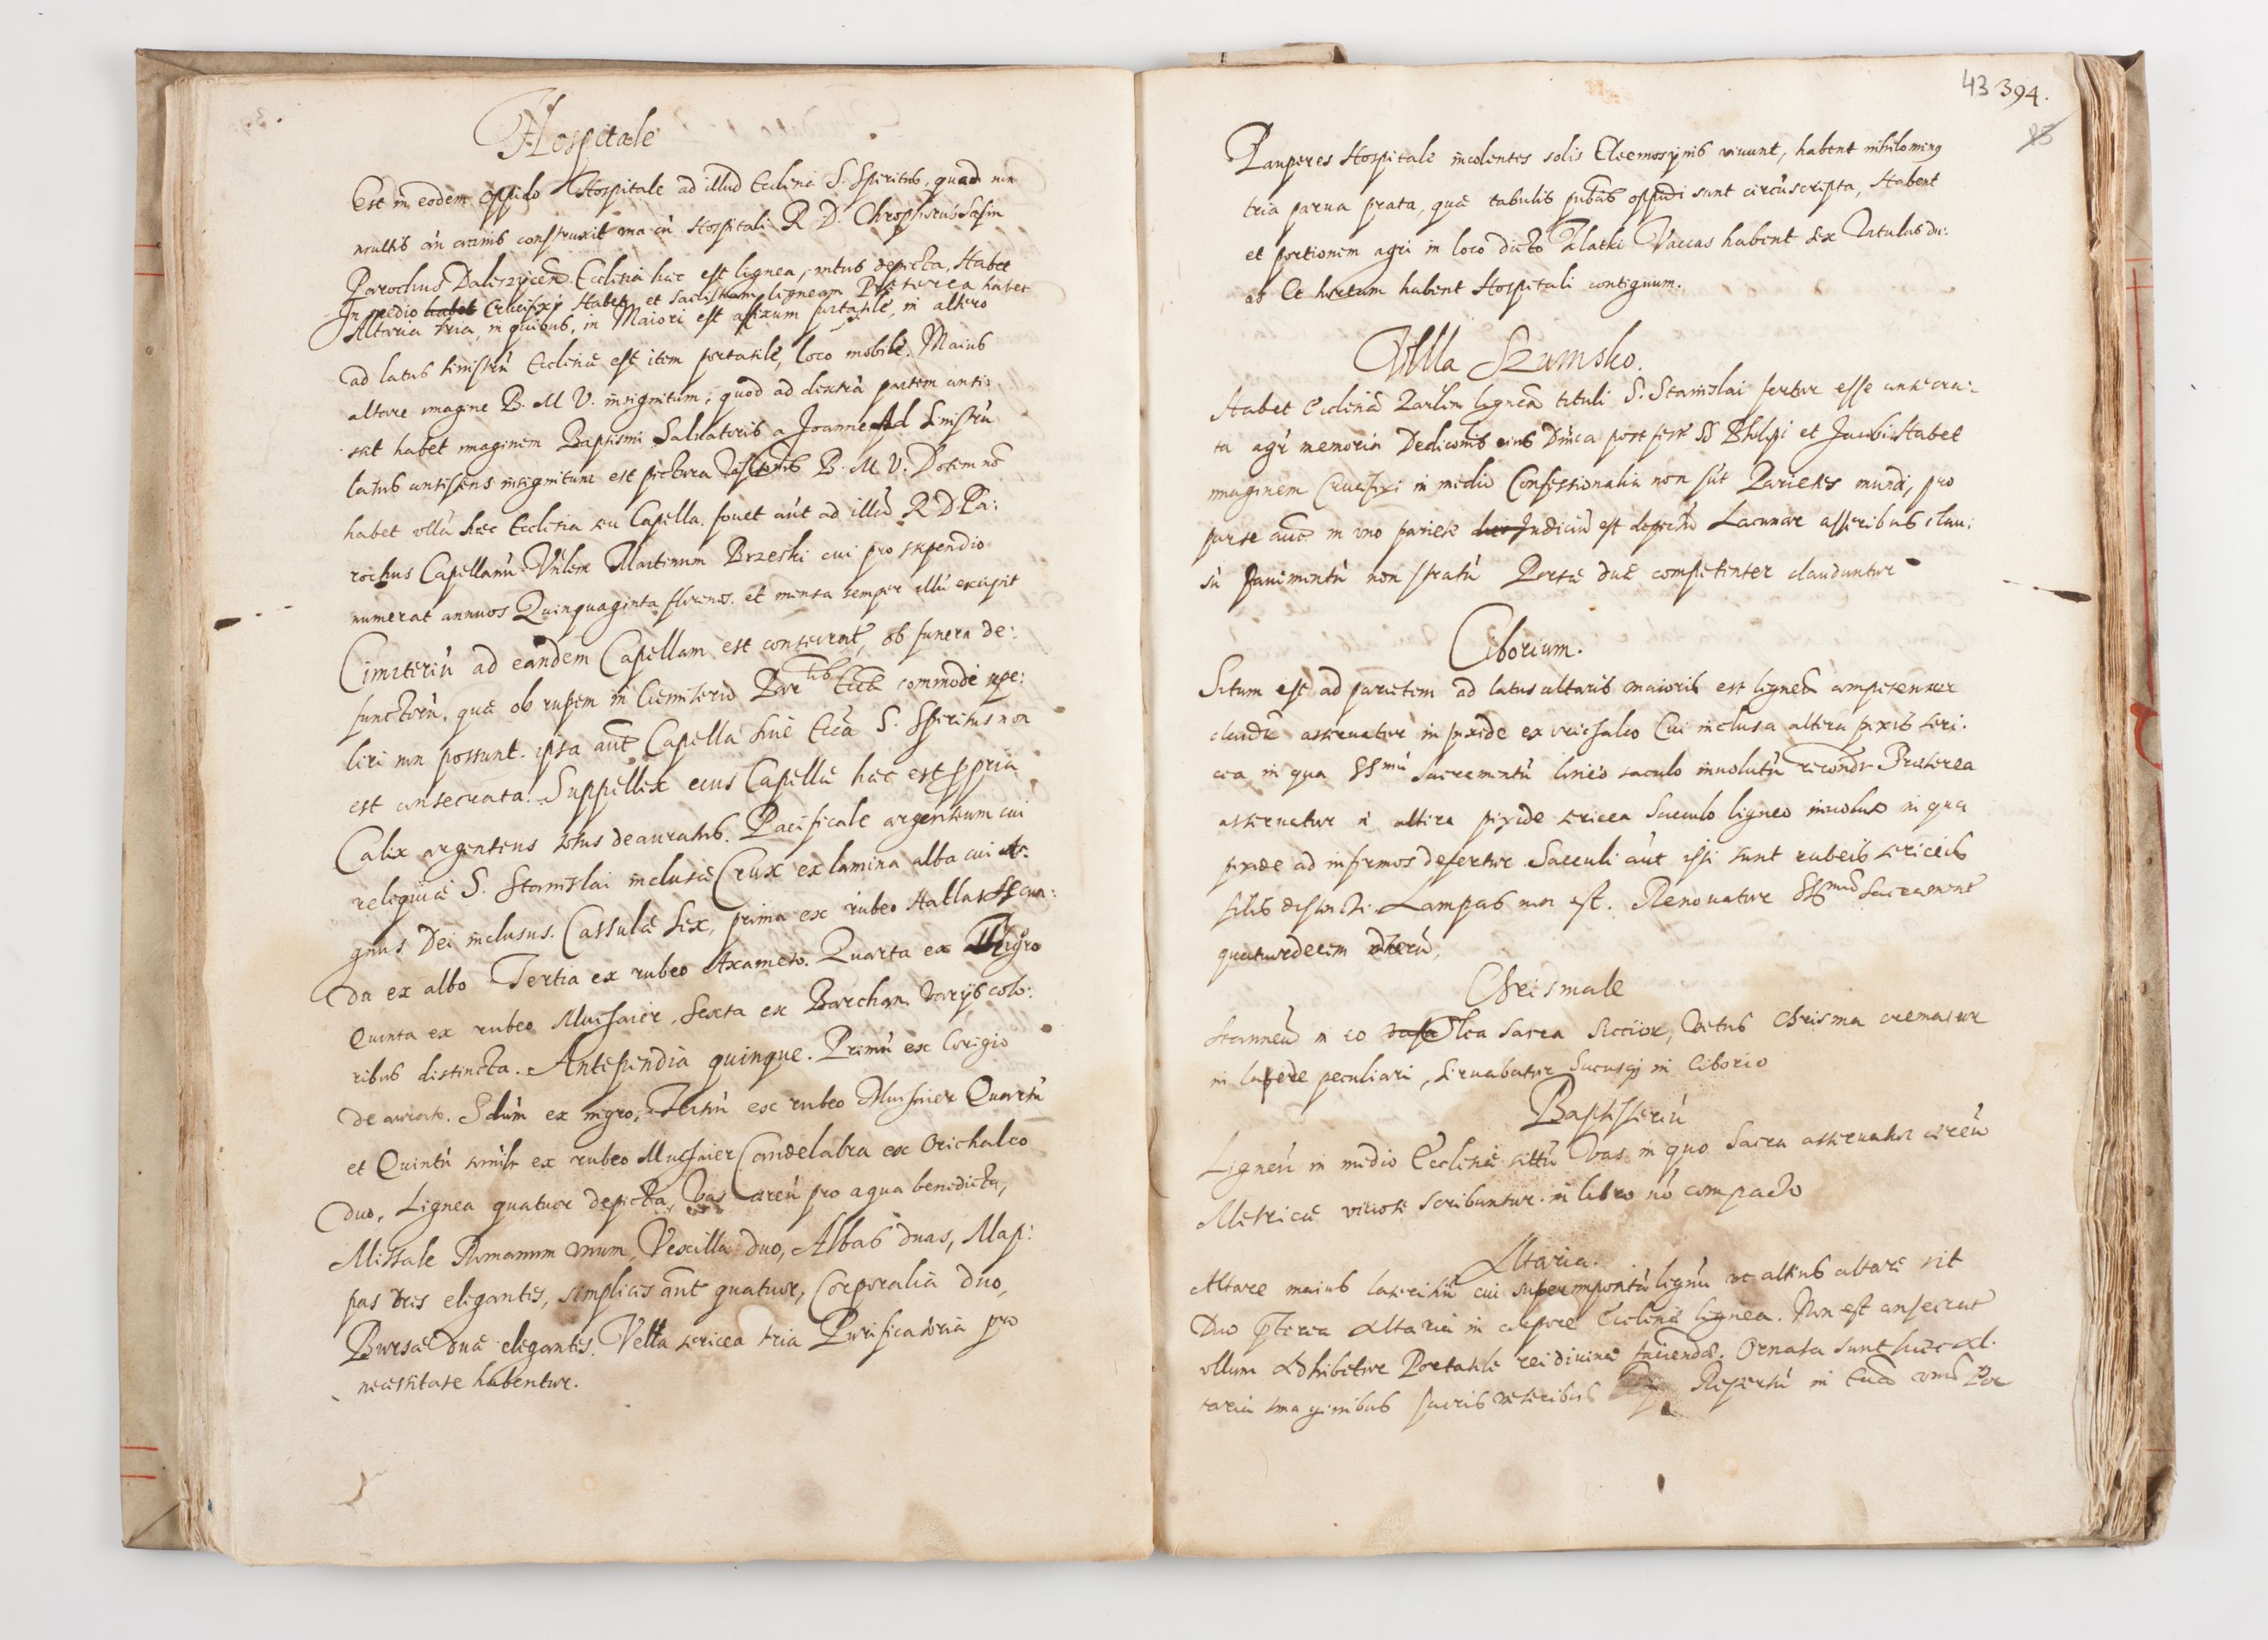 Hospitale
Est in eodem oppido Hospitale ad illud Ecclesia S. Spiritus, quod non
multis an annis construxit una cū Hospitali R. D. Chrophorus
Parochus Daleszycen. Ecclesia hæc est lignea, intus depicta, Habet
In medio habet Crucifixū Habet et Sacristiam ligneam Præterea habet
Altaria tria, in quibus, in Maiori est afixum portatile, in altero
ad latus sinistrū Ecclesiæ est item portatile, loco mobile. Maius
altare imagine B. M. V. insignitum, quod ad dextrā partem consis:
tit habet imaginem Baptismi Salvatoris a Joanne Ad Sinistrū
latus consistens insignitum est pictura B. M. V. Dotem nō
habet ullā hæc Ecclesia seu Capella. fouet aūt ad illā R D. Pa:
rochus Capellanū Vnlem Martinum Brzeski cui pro stipendio
numerat annuos Quinquaginta florenos. et mensa semper illū excipit
Cimiteriū ad eandem Capellam est consecrat, ob funera de:
functorū, quæ ob rupem in Cæmiterio Par Eccæ commodè sepe:
liri non possunt. ipsa aūt Capella siuè Eccā S. Spiritus non
est consecrata. Suppellex eius Capellæ hæc est ppria
Calix argenteus totus deauratus. Pacificale argenteum cui
reliquiæ S. Stanislai inclusæ Crux ex lamina alba cui A:
gnus Dei inclusus. Cassulæ Sex, prima ex rubeo Hatlas Secun:
da ex albo Tertia ex rubeo Axameto. Quarta ex Nigro
Quinta ex rubeo Muchaier, Sexta ex Barchan. varijs colo:
ribus distincta. Antependia quinque. Primū ex Corigio
deaurato. Sdum ex nigro, Tertiū ex rubeo Muchaier Quartū
et Quintū simile ex rubeo Muchaier Candelabra ex Orichalco
duo, Lignea quatuor depicta, Vas æreū pro aqua benedicta,
Missale Romanum unum, Vexilla duo, Albas duas, Map:
pas tres elegantes, simplices aūt quatuor, Corporalia duo,
Bursæ duæ elegantes. Vella sericea tria Purificatoria pro
necessitate habentur.
43 394.
85
Pauperes Hospitale incolentes solis Eleemosynis viuunt, habent nihilominq
tria parua prata, quæ tabulis pubcis oppidi sunt circūscripta, Habent
et portionem agri in loco dicto Vaccas habent sex Vitulas du:
as Et hortum habent Hospitali contiguum.
Villa Szumsko.
Habet Ecclesiā ligneā tituli S. Stanislai fertur esse consecra:
ta agr memoria Dedicomis eius Dnica post fest SS Philipi et Jacobi Habet
imaginem Crucifixi in medio Confessionalia non sūt Parietes mundi, pro
parte aūt in uno pariete Judiciū est depictū Lacunar asseribus clau:
sū Pauimentū non stratū Portæ duæ competenter clauduntur
Ciborium.
Situm est ad parietem ad latus altaris maioris est ligneū competenter
clauditr asseruatur in pixide ex orichalco Cui inclusa altera pixis seri:
cea in qua SSmū Sacramentū lineo saculo inuolutū recondr Præterea
asseruatur in altera pixide sericea Sacculo ligneo inuoluto in qua
pixide ad infirmos defertur. Sacculi aūt ipsi sunt rubeis sericeis
filis distincti. Lampas non est. Renouatur SSmū Sacrament
quatuordecim dierū,
Chrismale
Stanneū in eo vasa Olea Sacra Vetus Chrisma crematur
in lapide peculiari, Seruabatur hucusq in Ciborio
Baptisteriū
Ligneū in medio Ecclesiæ sitū Vas in quo Sacra asseruatur æreū
Metricæ vitiose scribuntur in libro nō compacto
Altaria.
Altare maius lateritiū cui superimpositū lignū ut altius altare sit
Duo pterea Altaria in corpore Ecclesiæ lignea. Non est consecrat
ullum Adhibetur Portatile rei diuinæ faciendæ. Ornata sunt hæc Al:
taria imaginibus sacris veteribus Repertū in Eccā unū Por